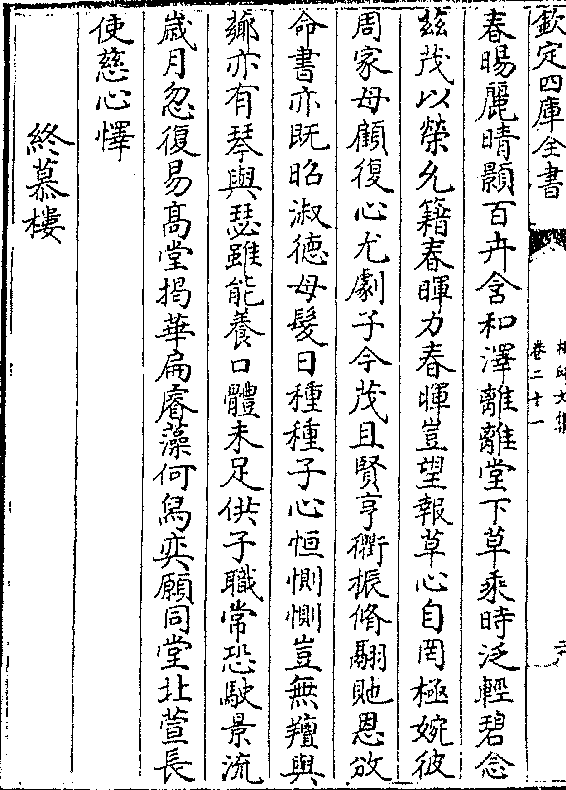 欽定四庫全書
卷二十一
春暘麗晴顥百卉含和澤離離堂下草乘時泛輕碧念
茲茂以榮允籍春暉力春暉豈望報草心自罔極婉彼
周家母顧復心尤劇子今茂且賢亨衢振脩翮貤恩放
命書亦既昭淑德母髮日種種子心恒惻惻豈無羶與
薌亦有琴與瑟雖能養口體未足供子職常恐駛景流
歲月忽復易高堂揭華扁睿藻何舄奕願同堂北萱長
使慈心懌
終慕樓